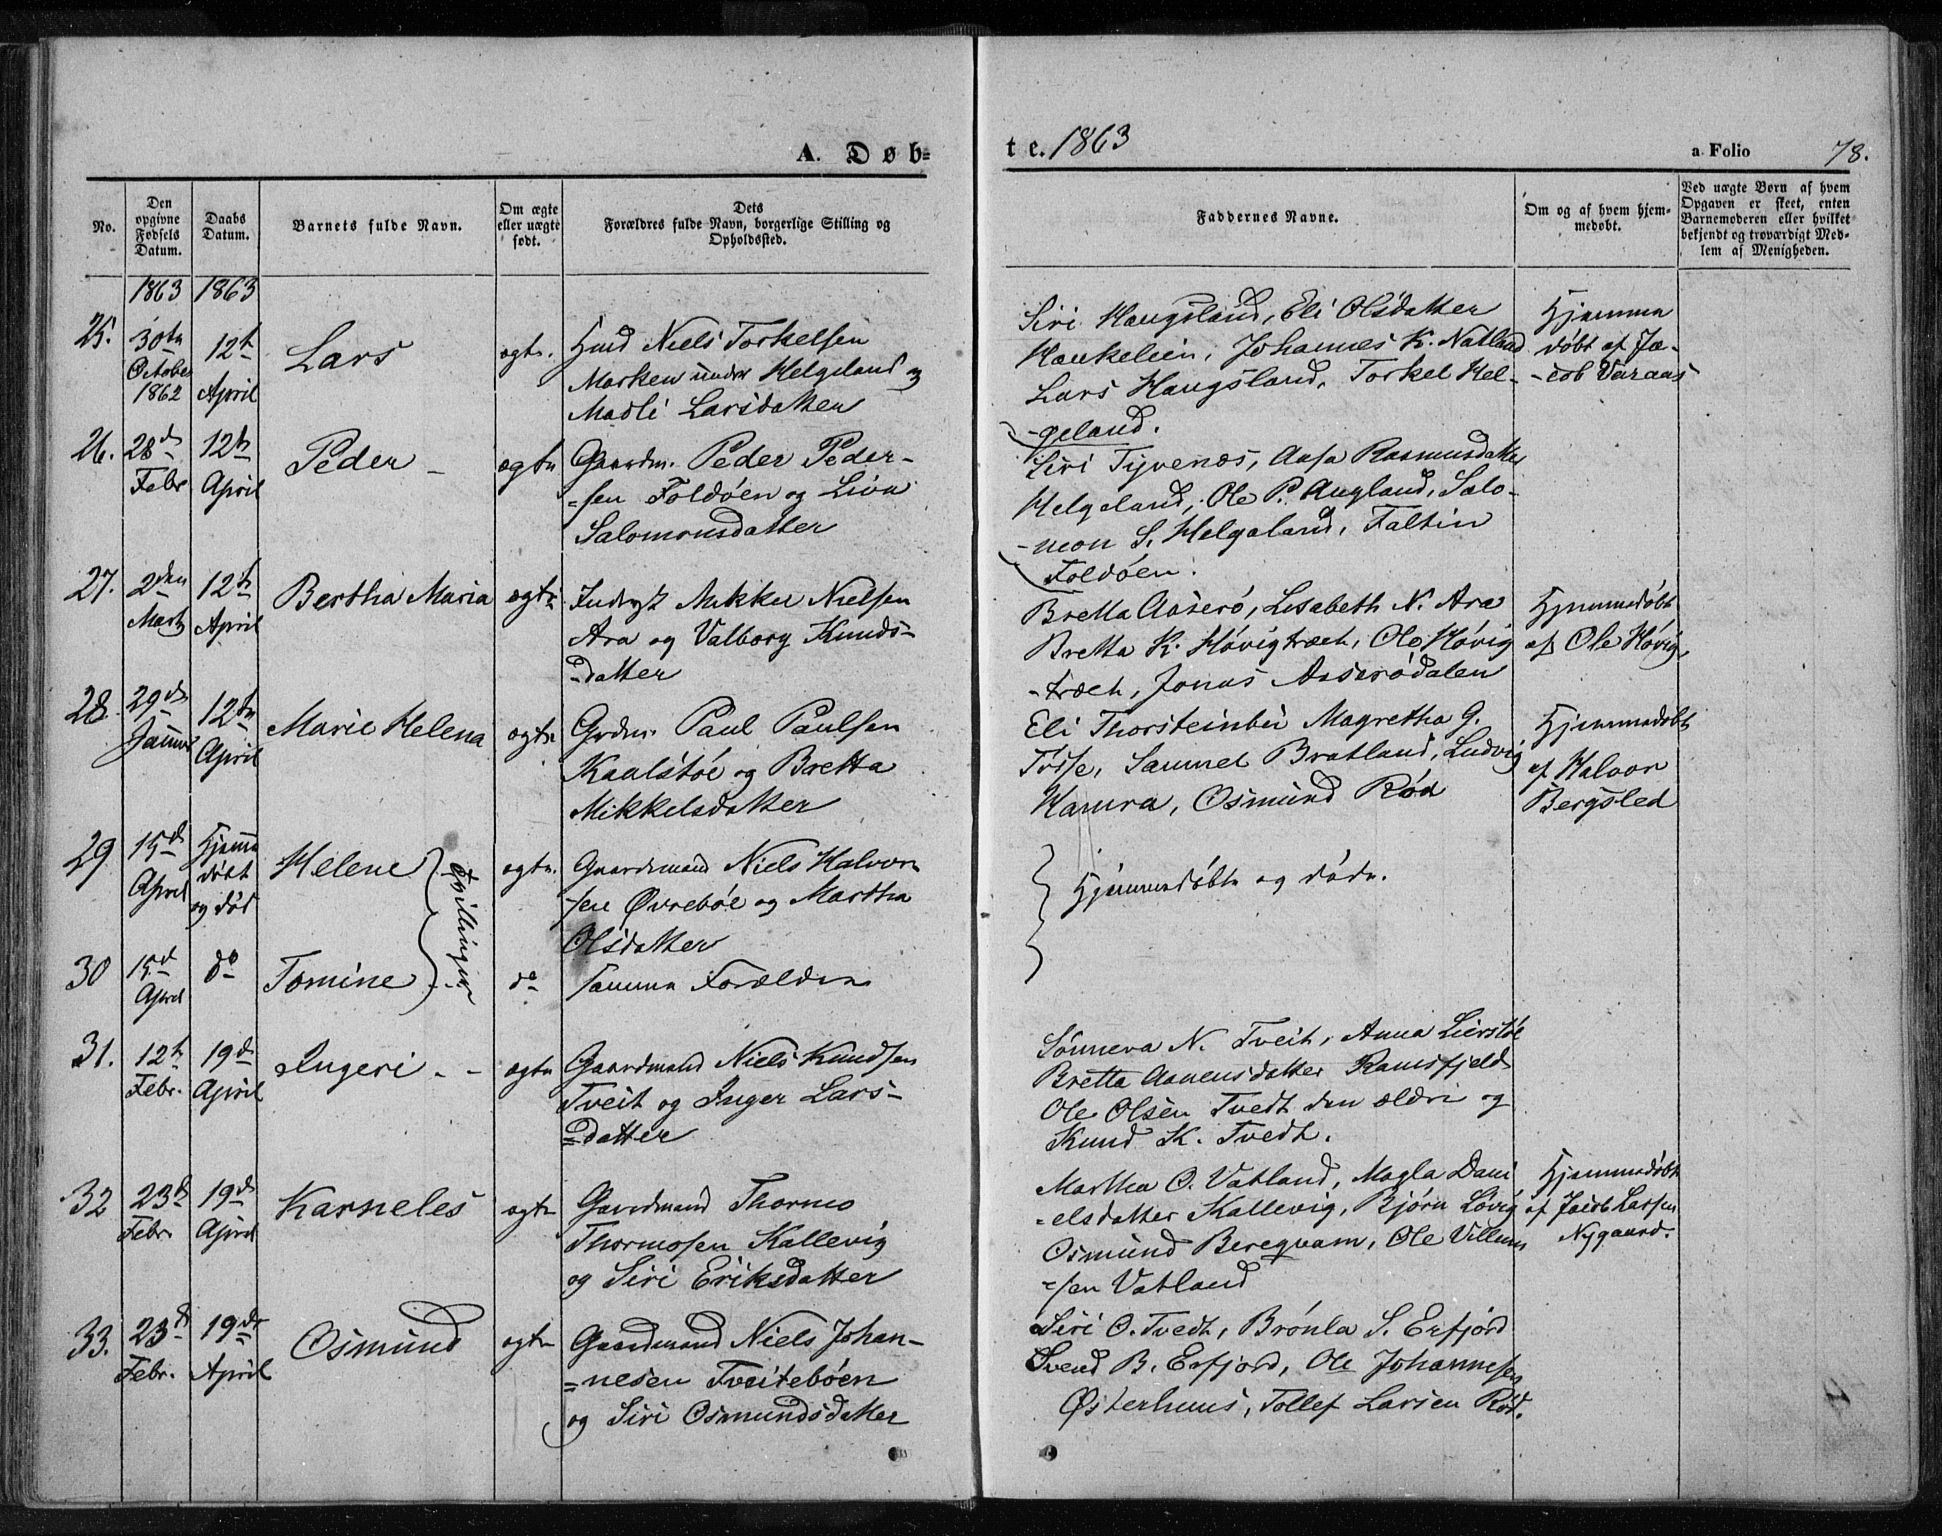 A. Døb=
te. 1863
a Folio 78.
No.
Den opgivne Fødsels Datum.
Daabs Datum.
Barnets fulde Navn.
Om ægte eller uægte født.
Dets Forældres fulde Navn, borgerlige Stilling og Opholdssted.
Faddernes Navne.
Om og af hvem hjemmedøbt.
Ved uægte Børn af hvem Opgaven er skeet, enten Barnemoderen eller hvilket bekjendt og troværdigt Medlem af Menigheden.
1863 1863
25.
30te October 1862
12t April
Lars
ægte.
Niels Torkelsen
Marken under Helgeland og
Madli Larsdatter
Siri Haugsland, Eli Olsdatter
Haukelien, Johannes K. Natland
Lars Haugsland, Torkel Hel-
-geland.
Hjemme
døbt af Ja-
-cob Varaas
26.
28d Febr
12te April
Peder -
ægte
Gaardm. Peder Peder-
=sen Foldøen og Liva
Salomonsdatter
Siri Tyvenæs, Aasa Rasmusdatter
Helgeland, Ole P. Augland, Salo-
-mon S. Helgeland, Faltin
Foldøen.
27.
2den Marts
12te April
Bertha Maria
ægte
Inderst Mikkel Nielsen
Ara og Valborg Knuds-
=datter
Bretta Aaserø, Lisabeth N. Ara
Bretta K. Høvigtræet, Ole Høvig
-træet, Jonas Aaserødalen
Hjemmedøbt
af Ole Høvig
28.
29de Januar
12te April
Marie Helena
ægte
Grdm. Paul Paulsen
Kaalstøe og Bretta
Mikkelsdatter
Eli Thorsteinbøi Magretha G.
Tøsse, Samuel Bratland, Ludvig
Hamra, Osmund Rød
Hjemmedøbt
af Halvor
Bergsled
29
15d April
Hjemme
døbt
og død
Helene
Tvillinger
ægte.
Gaardmand Niels Halvor
sen Øvrebøe og Martha
Olsdatter
Hjemmedøbte og døde.
30
15d April
do
Tomine
do
samme Forældre
31.
12t Febr.
19d April
Ingeri - -
ægte
Gaardmand Niels Knudsen
Tveit og Inger Lars-
=datter
Sønneva N. Tveit, Anna Lierstøe
Bretta Aanensdatter Ramsfjeld
Ole Olsen Tvedt den ældri og
Knud K. Tvedt.
32
23d Febr
19d April
Karneles
ægte
Gaardmand Thormo
Thormosen Kallevig
og Siri Eriksdatter
Martha O. Vatland, Magla Dani
=elsdatter Kallevig, Bjørn Løvig
Osmund Bergqvam, Ole Villum
=sen Vatland
Hjemmedøbt
af Jacob Larsen
Nygaard.
33.
23d Febr.
19de April
Osmund
ægte
Gaardmand Niels Johan-
=nesen Tveitebøen
og Siri Osmundsdatter
Siri O. Tvedt, Brønla S. Erfjord
Svend B. Erfjord, Ole Johannesen
Østerhuus, Tollef Larsen Rød.